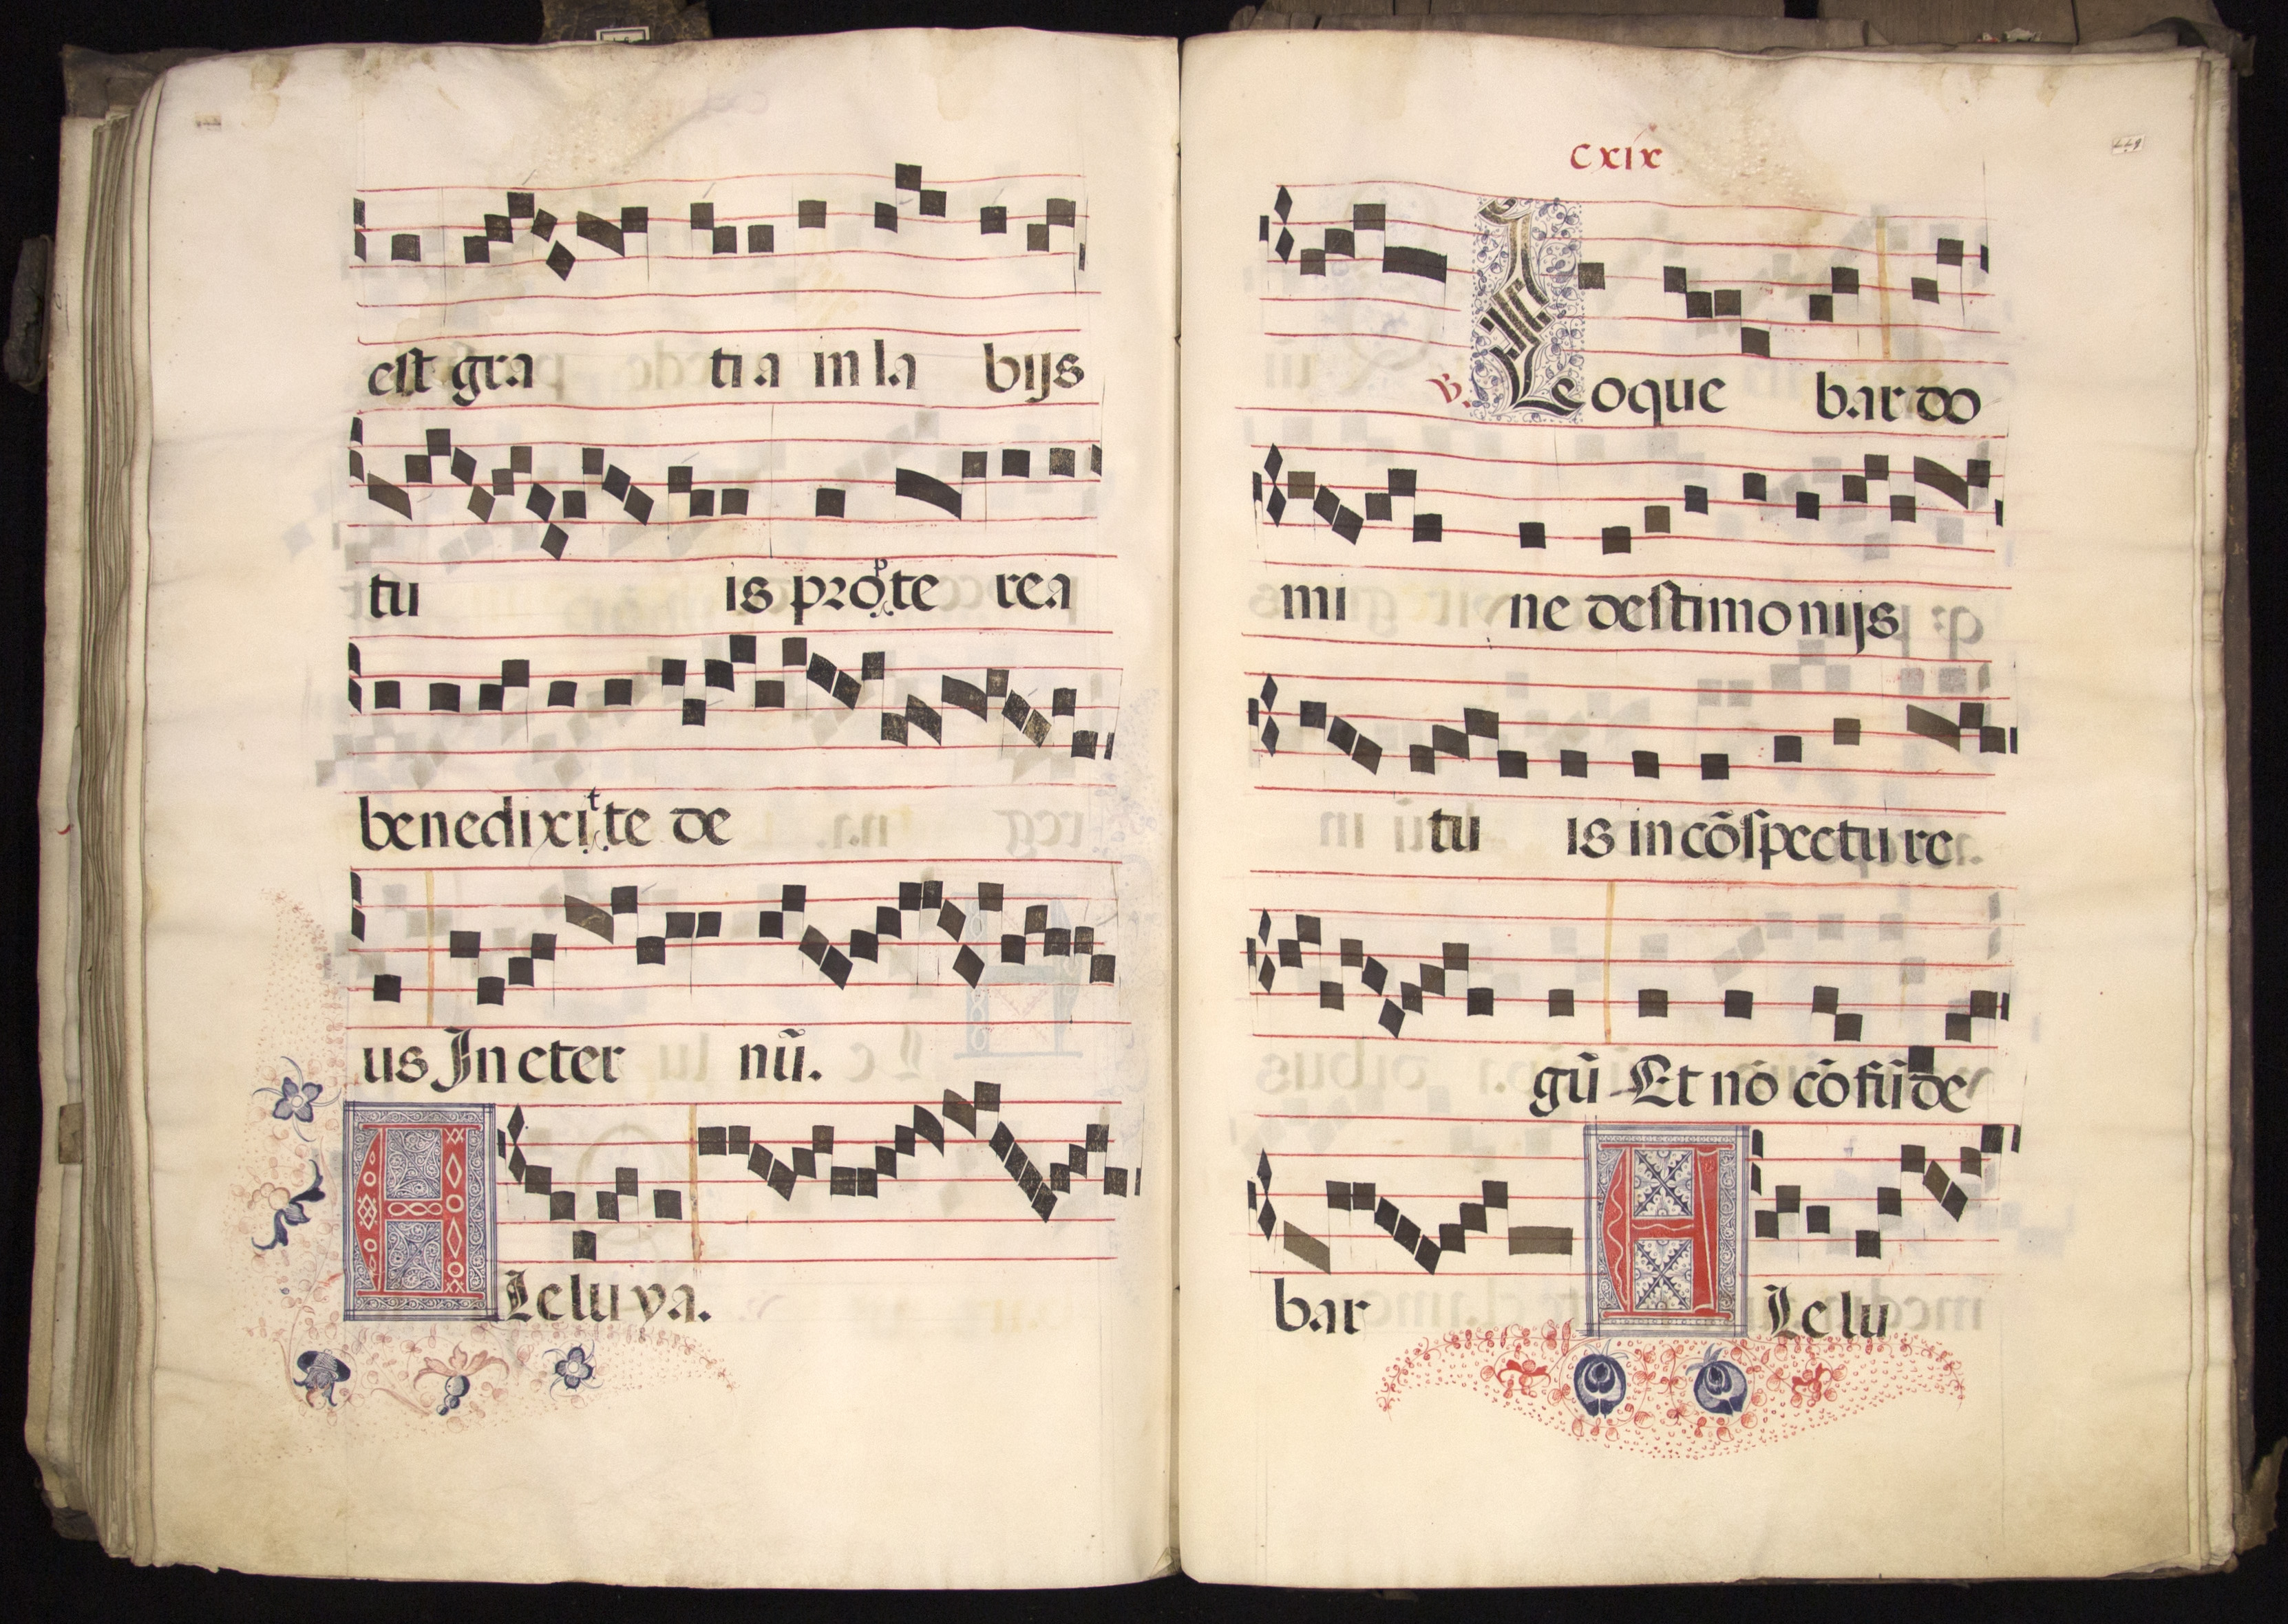 est gra ti a in la bijs
tu is prop te rea
benedixit te de
us In eter nũ.
A Le lu ya.
cxix
V. Loque bar do
mi ne de stimo nijs
tu is in cõspectu re
gũ Et nõ cõfũ de
bar A Le lu